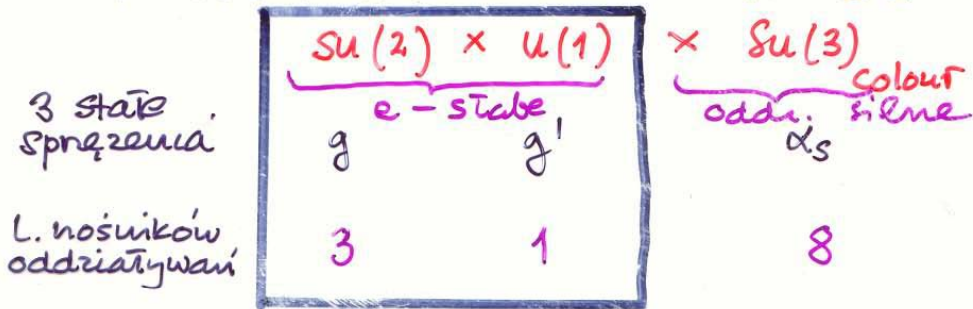 SU(2) × U(1) × SU(3) colour
e-słabe oddz. silne
3 stałe
sprzężenia g g' αs
L. nośników
oddziaływań 3 1 8